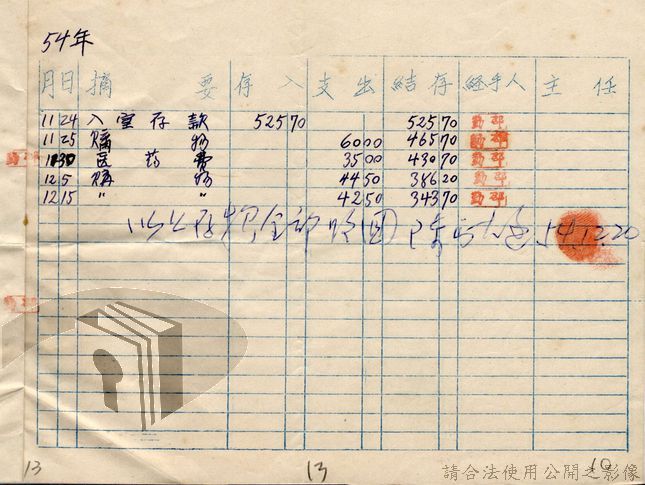 54年
月 日 摘 要 存 入 支 出 結 存 經手人 主 任
11 24 入室存款 525 70 525 70
11 25 購物 60 00 465 70
11 30 医药費 35 00 430 70
12 5 購物 44 50 386 20
12 15 〃 〃 42 50 343 70
以上存款全部收回 陳 54.12.20
13 13 10
請合法使用公開之影像